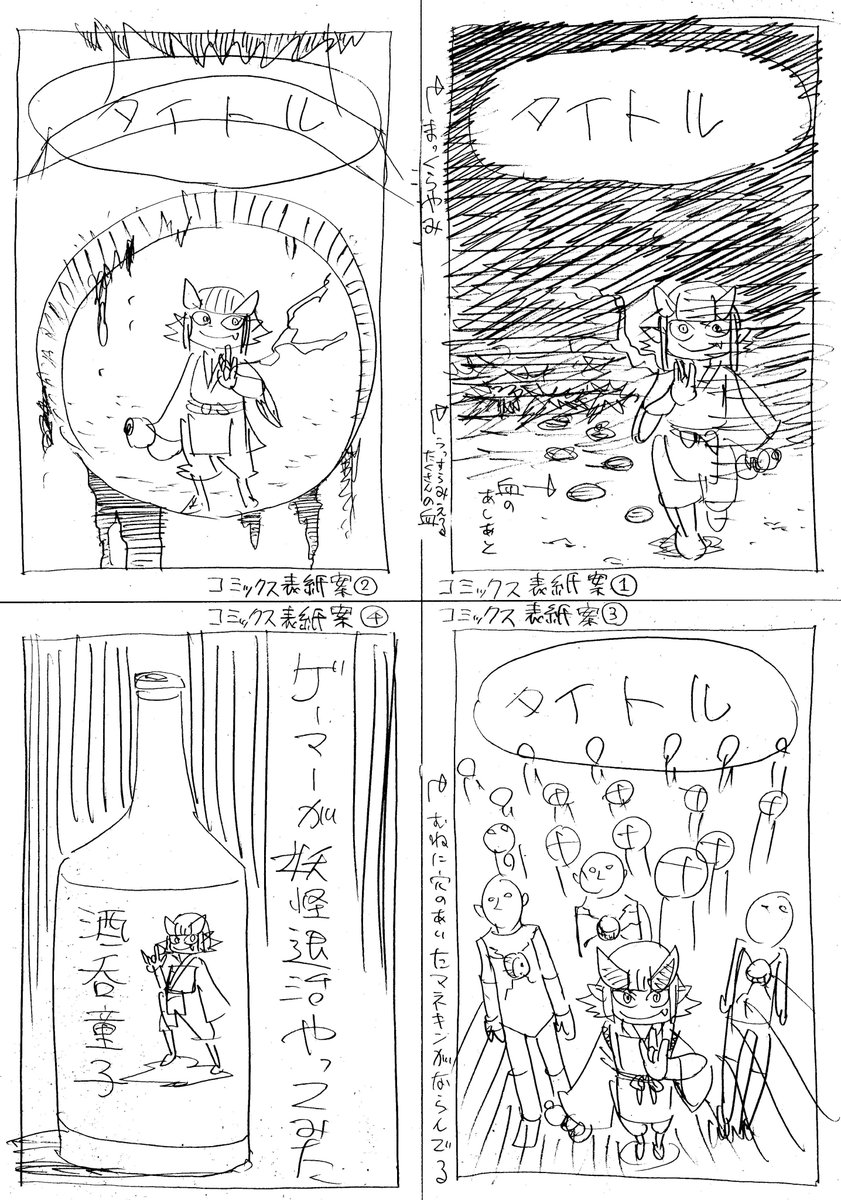 タイトル
まっくらやみ
うっすらみえてる
たくさんの血
血の
あしあと
コミックス表紙案①
タイトル
コミックス表紙案②
コミックス表紙案③
タイトル
むねに穴のあいたマネキンがならんでる
コミックス表紙案④
ゲーマーが妖怪退治やってみた
酒呑童子